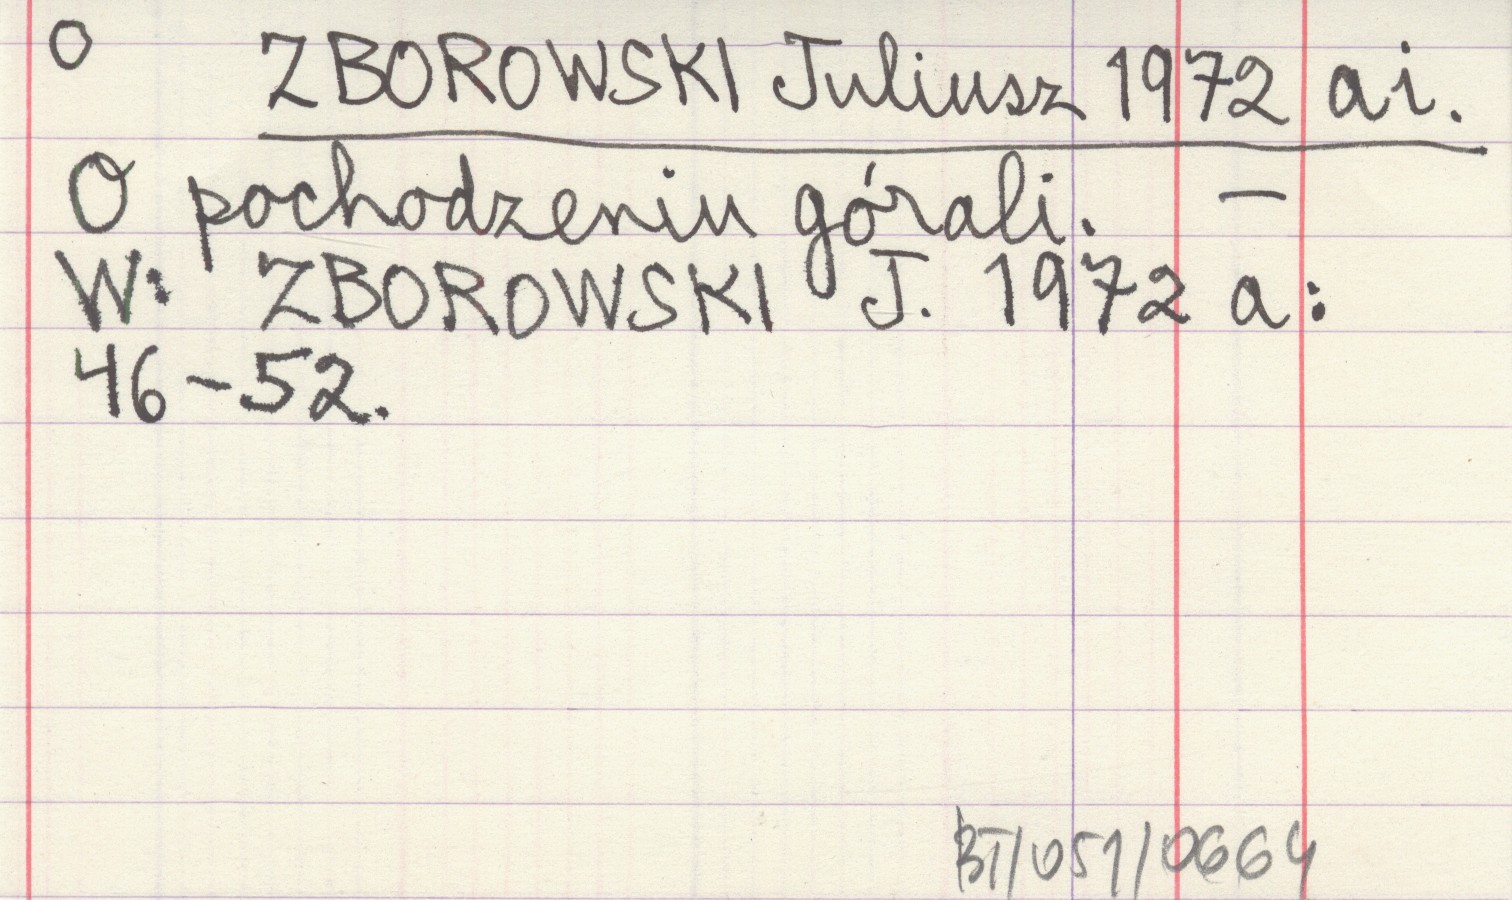 O ZBOROWSKI Juliusz 1972 ai.
O pochodzeniu górali. —
W: ZBOROWSKI J. 1972 a:
46-52.
BT/051/0664